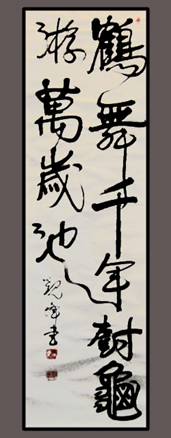 鶴舞千年樹龜
游萬歲池
觀峰書